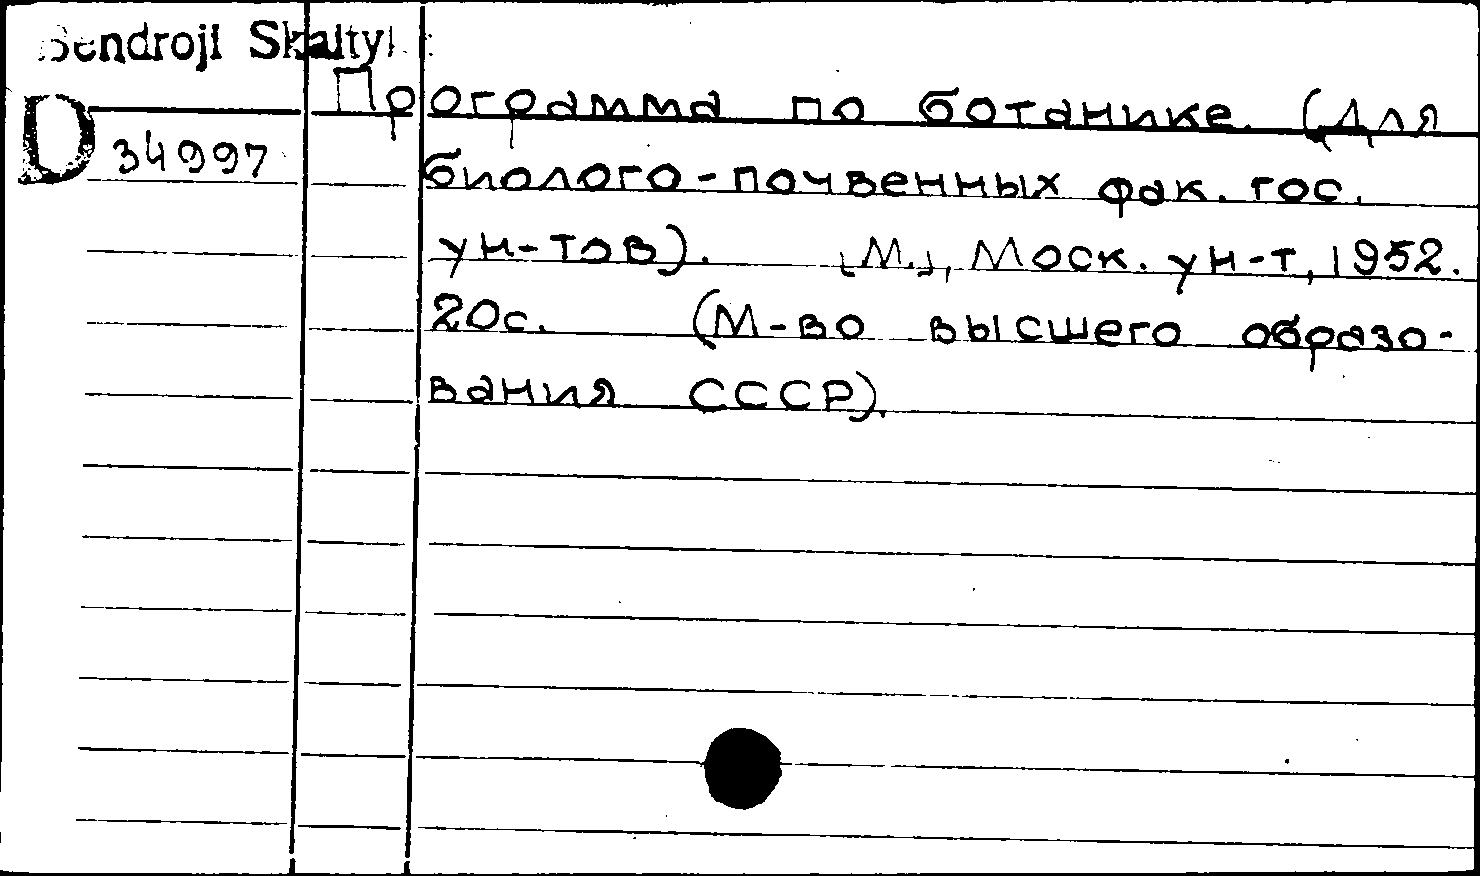 Bendroji Skaityk
Программа по ботанике. (Для
D 34997
биолого-почвенных фак. гос.
ун-тов). [М.], Моск. ун-т, 1952.
20с. (М-во высшего образо-
вания СССР).